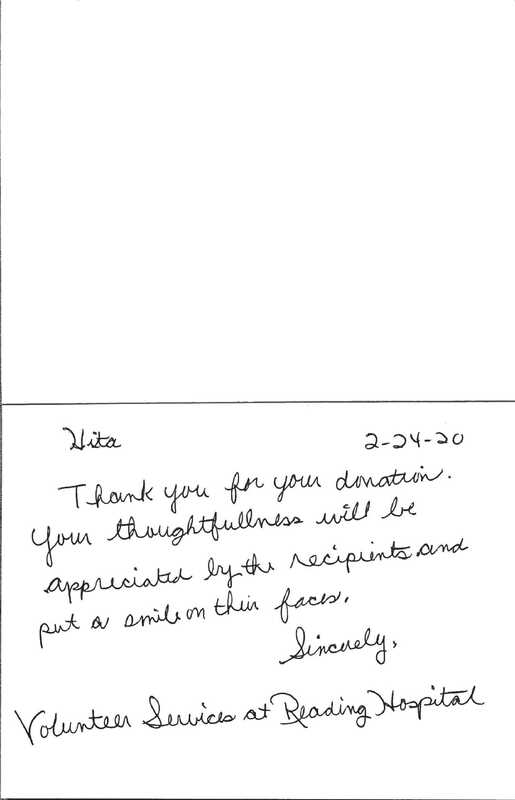 Hita 2-24-20
Thank you for your donation.
Your thoughtfullness will be
appreciated by the recipients and
put a smile on their faces.
Sincerely,
Volunteer Services at Reading Hospital